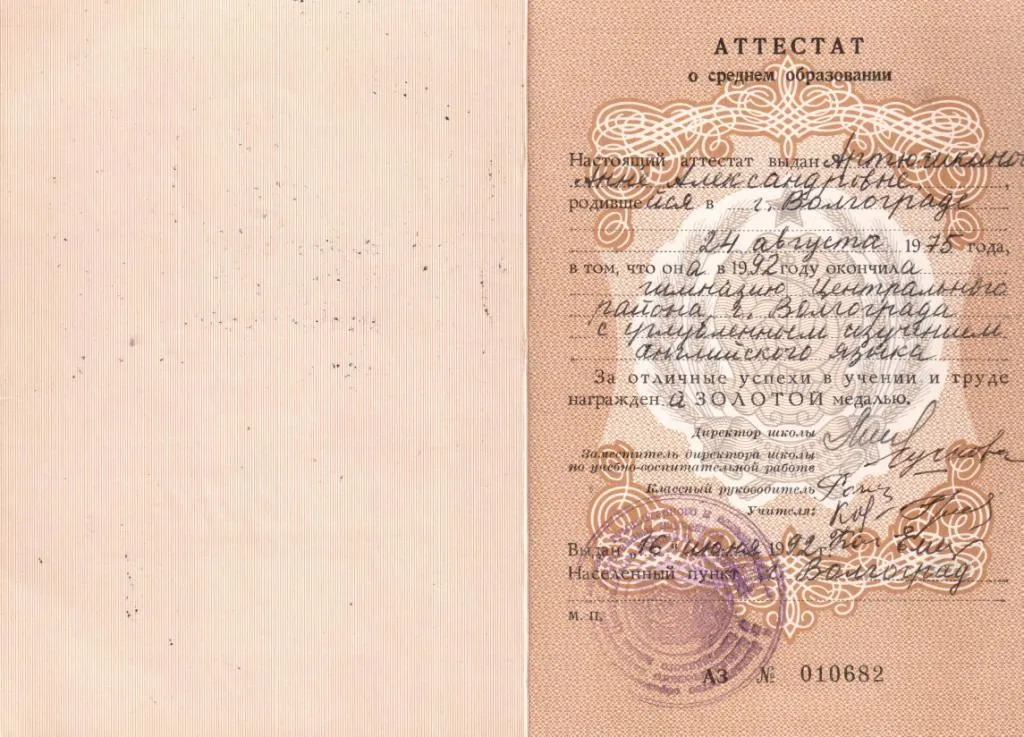 АТТЕСТАТ
о среднем образовании
Настоящий аттестат выдан Антюшкиной
Анне Александровне,
родившейся в г. Волгограде
24 августа 1975 года,
в том, что она в 1992 году окончила
гимназию Центрального
района г. Волгограда
с углубленным изучением
английского языка
За отличные успехи в учении и труде
награждена ЗОЛОТОЙ медалью.
Директор школы
Заместитель директора школы
по учебно-воспитательной работе
Классный руководитель
Учителя:
Выдан „16" июня 1992 г.
Населенный пункт г. Волгоград
м. п.
АЗ № 010682